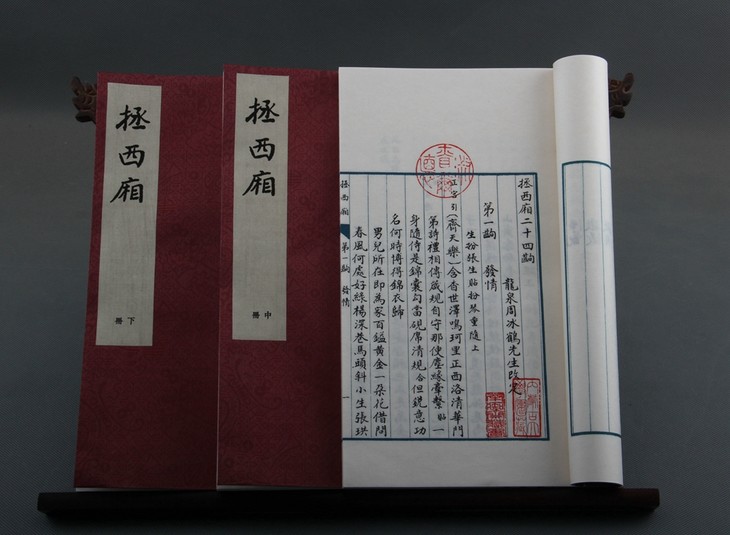 拯西廂
下冊
拯西廂
中冊
拯西廂二十四齣
龍泉周冰鶴先生改定
第一齣 發情
生扮張生貼扮琴童隨上
正宮引(齊天樂)含香世澤鳴珂里正西洛清華門
第詩禮相傳威規自守那使塵緣牽繫貼一
身隨侍是錦囊勾當硯席清規合但銳意功
名何時博得錦衣歸
男兒所在即為家百鎰黃金一朵花借問
春風何處好綠楊深巷馬頭斜小生張珙
拯西廂
第一齣 發情
一